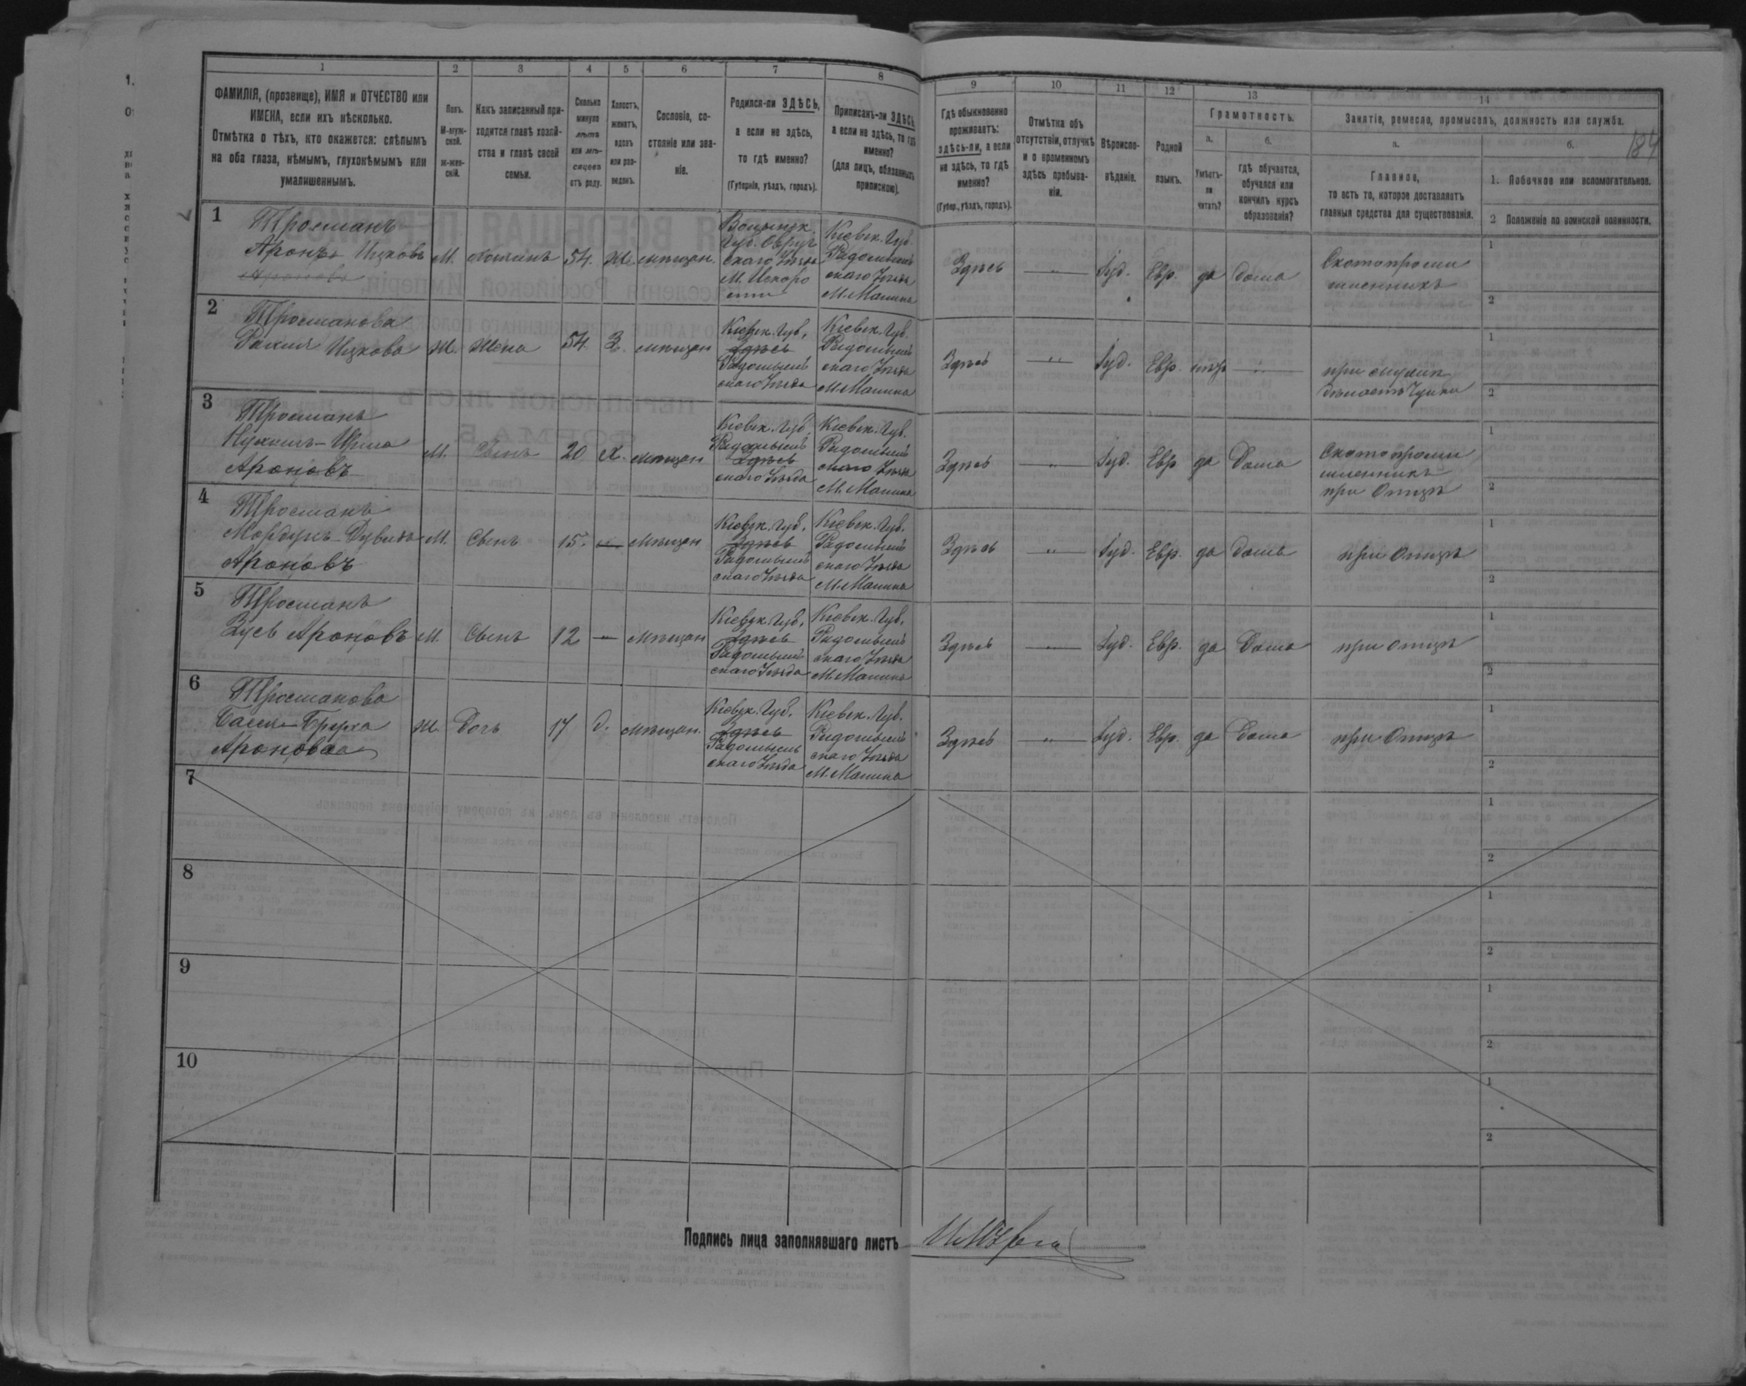 1 2 3 4 5 6 7 8 9 10 11 12 13 14
ФАМИЛІЯ, (прозвище), ИМЯ и ОТЧЕСТВО или
ИМЕНА, если ихъ нѣсколько.
Отмѣтка о тѣхъ, кто окажется: слѣпымъ
на оба глаза, нѣмымъ, глухонѣмымъ или
умалишеннымъ.
Полъ.
М-муж-
ской.
ж-жен-
скій.
Какъ записанный при-
ходится главѣ хозяй-
ства и главѣ своей
семьи.
Сколько
минуло
лѣтъ
или мѣ-
сяцевъ
отъ роду.
Холостъ,
женатъ,
вдовъ
или раз-
веденъ.
Сословіе, со-
стояніе или зва-
ніе.
Родился-ли ЗДѢСЬ,
а если не здѣсь,
то гдѣ именно?
(Губернія, уѣздъ, городъ).
Приписанъ-ли ЗДѢСЬ,
а если не здѣсь, то гдѣ
именно?
(для лицъ, обязанныхъ
припискою).
Гдѣ обыкновенно
проживаетъ:
здѣсь-ли, а если
не здѣсь, то гдѣ
именно?
(Губер., уѣздъ, городъ).
Отмѣтка объ
отсутствіи, отлучкѣ
и о временномъ
здѣсь пребыва-
ніи.
Вѣроиспо-
вѣданіе.
Родной
языкъ.
Грамотность.
а.
Умѣетъ-
ли
читать?
б.
гдѣ обучается,
обучался или
кончилъ курсъ
образованія?
Занятія, ремесла, промыселъ, должность или служба.
184
а.
Главное,
то есть то, которое доставляетъ
главныя средства для существованія.
б.
1. Побочное или вспомогательное.
2 Положеніе по воинской повинности.
1
Тросманъ
Аронъ Ицковъ
М. Хозяинъ 54. Ж. мѣщан.
Волынск.
Губ. Овруч
скаго Уѣзда
М. Искоро
сти
Кіевск. Губ.
Радомысль
скаго Уѣзда
М. Малина
Здѣсь
Іуд. Евр. да Дома
Скотопромы
шленникъ
1
2
2
Тросманова
Рахиль Ицкова
Ж. Жена 54 З. мѣщан
Кіевск. Губ.
Здѣсь
Радомысль
скаго Уѣзда
Кіевск. Губ.
Радомысль
скаго Уѣзда
М. Малина
Здѣсь
Іуд. Евр.
при мужѣ
1
2
3
Тросманъ
Ароновъ
М. Сынъ 20 Х. мѣщан
Кіевск. Губ.
Радомысль
Здѣсь
скаго Уѣзда
Кіевск. Губ.
Радомысль
скаго Уѣзда
М. Малина
Здѣсь
Іуд. Евр да Дома
Скотопромы
шленникъ
при Отцѣ
1
2
4
Тросманъ
Мордухъ-Дувидъ
Ароновъ
М. Сынъ 15 мѣщан
Кіевск. Губ.
Здѣсь
Радомысль
скаго Уѣзда
Кіевск. Губ.
Радомысль
скаго Уѣзда
М. Малина
Здѣсь
Іуд. Евр. да Дома
при Отцѣ
1
2
5
Тросманъ
Зусь Ароновъ
М. Сынъ 12 — мѣщан
Кіевск. Губ.
Здѣсь
Радомысль
скаго Уѣзда
Кіевск. Губ.
Радомысль
скаго Уѣзда
М. Малина
Здѣсь
Іуд. Евр. да Дома
при Отцѣ
1
2
6
Тросманова
Бася-Бруха
Аронова
Ж. Дочь 17 д. мѣщан.
Кіевск. Губ.
Здѣсь
Радомысль
скаго Уѣзда
Кіевск. Губ.
Радомысль
скаго Уѣзда
М. Малина
Здѣсь
Іуд. Евр. да Дома
при Отцѣ
1
2
7
1
2
8
1
2
9
1
2
10
1
2
Подпись лица заполнявшаго листъ